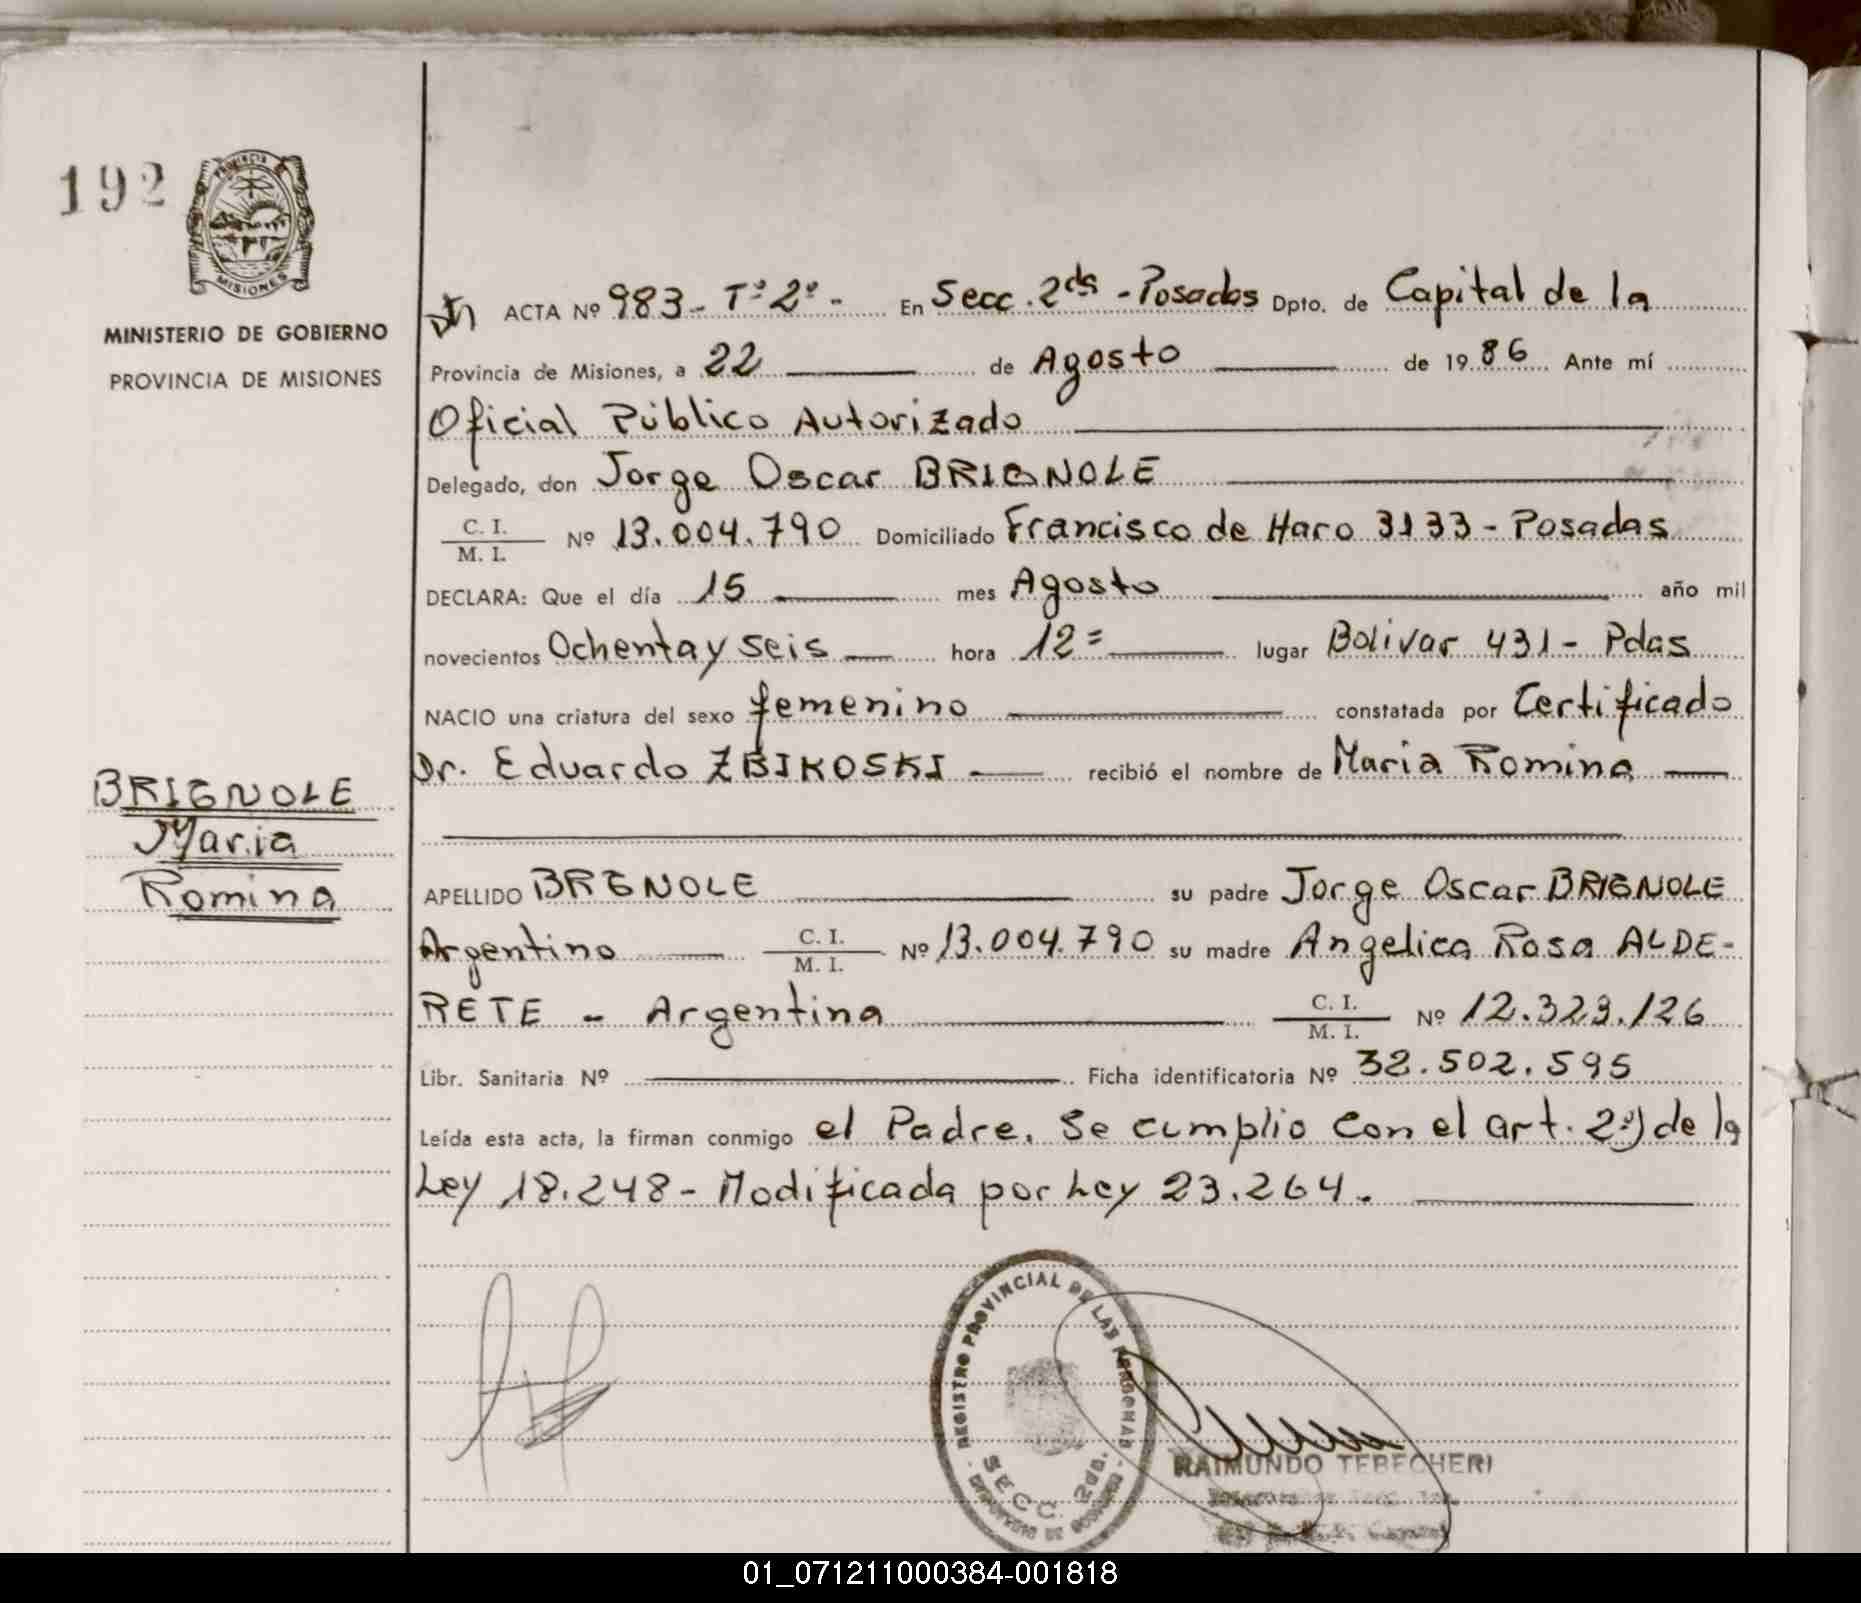 192
PROVINCIA DE
MISIONES
MINISTERIO DE GOBIERNO
PROVINCIA DE MISIONES
BRIGNOLE
Maria
Romina
ACTA Nº 983 - Tº 2º - En Secc. 2da - Posadas Dpto. de Capital de la
Provincia de Misiones, a 22 de Agosto de 1986 Ante mí
Oficial Público Autorizado
Delegado, don Jorge Oscar BRIGNOLE
C. I.
M. I. Nº 13.004.790 Domiciliado Francisco de Haro 3133 - Posadas
DECLARA: Que el día 15 mes Agosto año mil
novecientos Ochenta y seis hora 12= lugar Bolivar 431 - Pdas
NACIO una criatura del sexo femenino constatada por Certificado
Dr. Eduardo ZBIKOSKI recibió el nombre de Maria Romina
APELLIDO BRGNOLE su padre Jorge Oscar BRIGNOLE
Argentino C. I. M. I. Nº 13.004.790 su madre Angelica Rosa ALDE-
RETE - Argentina C. I. M. I. Nº 12.323.126
Libr. Sanitaria Nº Ficha identificatoria Nº 32.502.595
Leída esta acta, la firman conmigo el Padre. Se cumplio con el art. 2º) de la
Ley 18.248 - Modificada por Ley 23.264.
REGISTRO PROVINCIAL DE LAS PERSONAS
SECC. 2da.
RAIMUNDO TEBECHERI
01_071211000384-001818